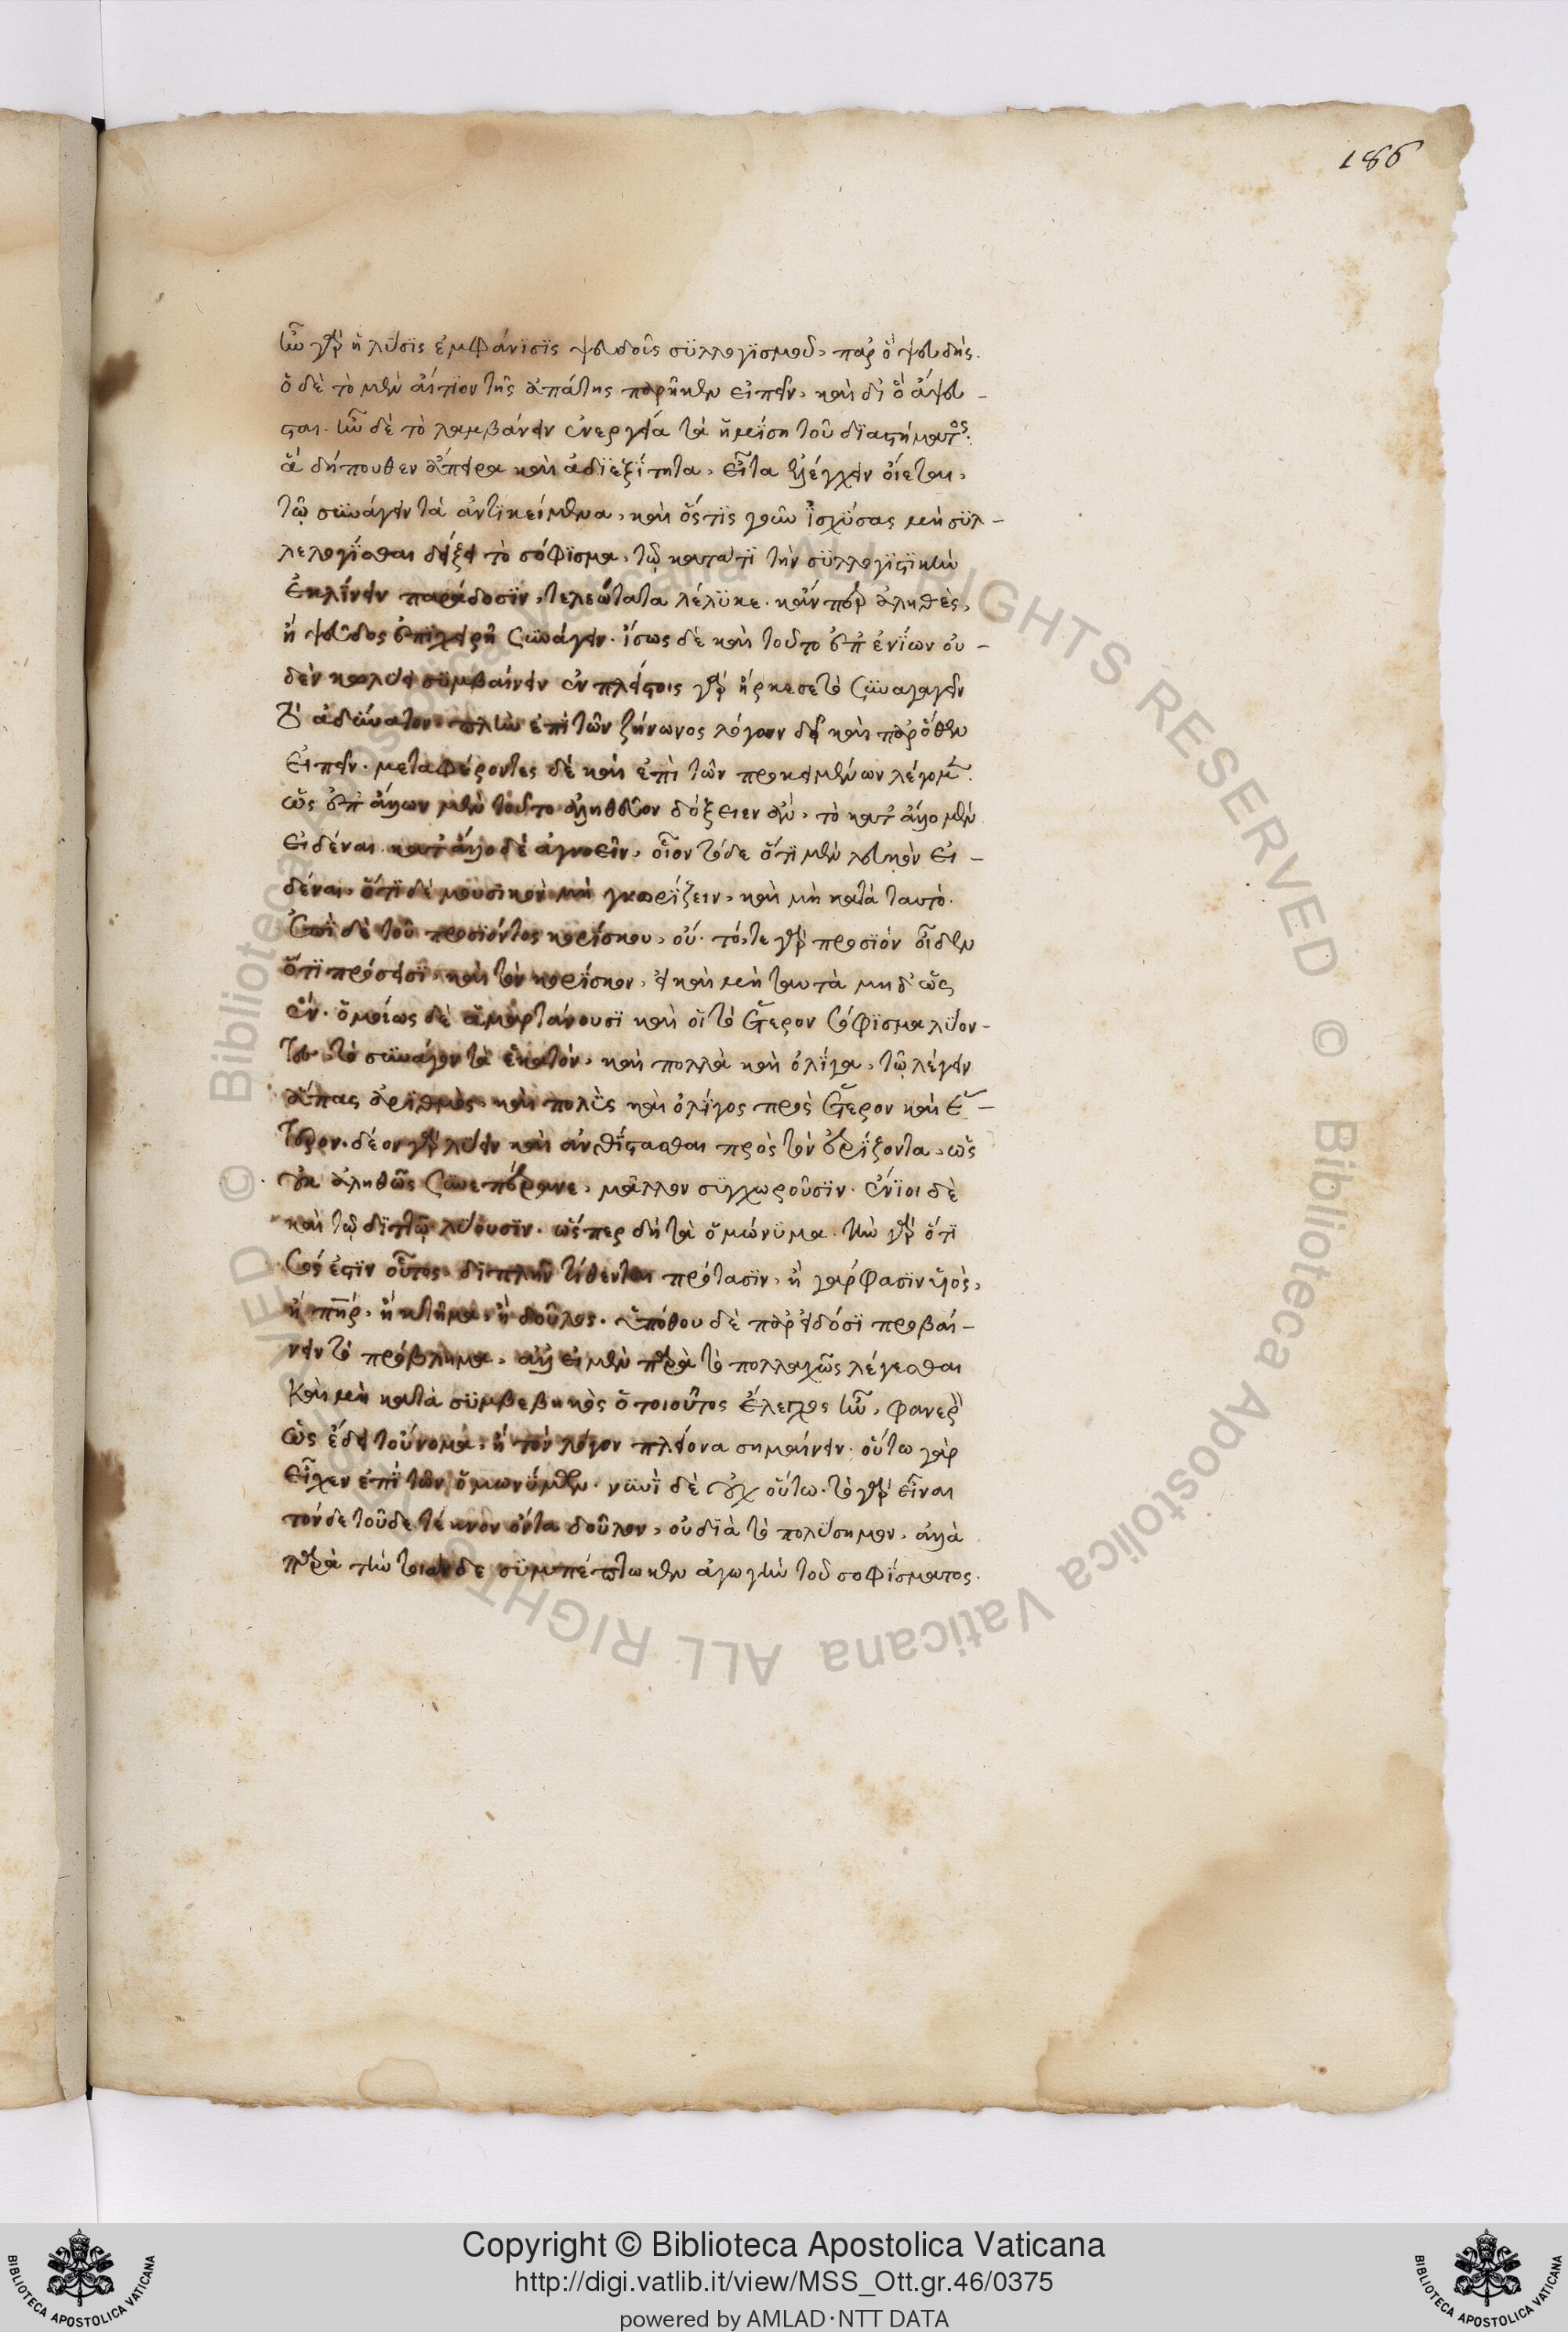 186
ἦν γὰρ ἡ λύσις ἐμφάνισις ψευδοῦς συλλογισμοῦ, παρ' ὃ ψευδής.
ὁ δὲ τὸ μὲν αἴτιον τῆς ἀπάτης παρῆκεν εἰπεῖν, καὶ δι' ὃ ἔψευ-
σται. ἦν δὲ τὸ λαμβάνειν ἐνεργείᾳ τὰ ἡμίση τοῦ διαστήματος.
ἃ δήπουθεν ἄπειρα καὶ ἀδιεξίτητα, εἶτα ἐλέγχειν οἴεται,
τῷ συνάγειν τὰ ἀντικείμενα, καὶ ὅστις γοῦν ἰσχύσας μὴ συλ-
λελογίσθαι δείξει τὸ σόφισμα, τῷ κατά τι τὴν συλλογιστικὴν
ἐκλίνειν παράδοσιν, τελεώτατα λέλυκε. κἄν περ ἀληθὲς,
ἢ ψεῦδος ἐπιχειρῇ συνάγειν. ἴσως δὲ καὶ τοῦτο ἐπ' ἐνίων οὐ-
δὲν κωλύει συμβαίνειν ἐν πλείστοις γὰρ ἤρκεσε τὸ συναγαγεῖν
τὸ ἀδύνατον. πλὴν ἐπὶ τῶν ζήνωνος λόγων δεῖ καὶ παρ' ὃ θεν
εἰπεῖν. μεταφέροντες δὲ καὶ ἐπὶ τῶν προκειμένων λέγομεν.
ὡς ἐπ' ἄλλων μὲν τοῦτο ἀληθεῦον δόξειεν ἂν, τὸ κατ' ἄλλο μὲν
εἰδέναι. κατ' ἄλλο δὲ ἀγνοεῖν, οἷον τόδε ὅτι μὲν λευκὸν εἰ-
δέναι, ὅτι δὲ μουσικὸν μὴ γνωρίζειν, καὶ μὴ κατὰ ταυτό.
ἐπὶ δὲ τοῦ προσιόντος κορίσκου, οὔ. τό, τε γὰρ προσιόν οἶδεν
ὅτι πρόσεισι, καὶ τὸν κορίσκον, εἰ καὶ μὴ ταυτὰ μηδ' ὡς
ἕν. ὁμοίως δὲ ἁμαρτάνουσι καὶ οἱ τὸ ἕτερον σόφισμα λύον-
τες, τὸ συνάγον τὰ ἑκατόν, καὶ πολλὰ καὶ ὀλίγα, τῷ λέγειν
ἅπας ἀριθμὸς, καὶ πολὺς καὶ ὀλίγος πρὸς ἕτερον καὶ ἕ-
τερον. δέον γὰρ λύειν καὶ ἀνθίστασθαι πρὸς τὸν ἐρίζοντα, ὡς
οὐκ ἀληθῶς συνεπέρανε, μᾶλλον συγχωροῦσιν. ἔνιοι δὲ
καὶ τῷ διττῷ λύουσιν. ὥσπερ δὴ τὰ ὁμώνυμα. τὴν γὰρ ὅτι
σός ἐστιν οὗτος, διπλῆν τίθενται πρότασιν, ἢ γάρ φασιν υἱὸς,
ἢ πατὴρ, ἢ κτῆμα, ἢ δοῦλος. ὑπόθου δὲ παρ' εἰδόσι προβαί-
νειν τὸ πρόβλημα, ἀλλ' εἰ μὲν παρὰ τὸ πολλαχῶς λέγεσθαι
καὶ μὴ κατὰ συμβεβηκὸς ὁ τοιοῦτος ἔλεγχος ἦν, φανερὸν
ὡς ἔδει τοὔνομα, ἢ τὸν λόγον πλείονα σημαίνειν. οὕτω γὰρ
εἶχεν ἐπὶ τῶν ὁμωνύμων. νυνὶ δὲ οὐχ οὕτω. τὸ γὰρ εἶναι
τόνδε τοῦδε τέκνον ὄντα δοῦλον, οὐ διὰ τὸ πολύσημον, ἀλλὰ
παρὰ τὴν τοιάνδε συμπέπτωκεν ἀγωγὴν τοῦ σοφίσματος.
Copyright © Biblioteca Apostolica Vaticana
http://digi.vatlib.it/view/MSS_Ott.gr.46/0375
powered by AMLAD·NTT DATA